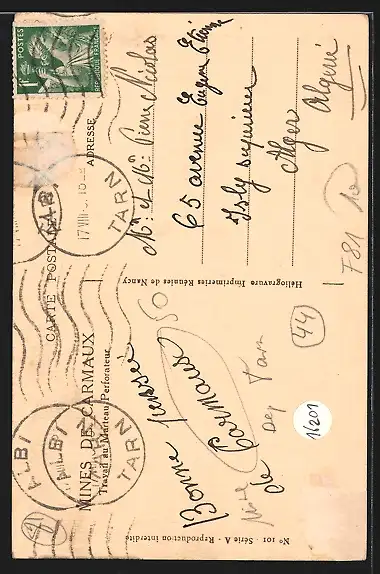 MINES DE CARMAUX
Travail au Marteau Perforateur
CARTE POSTALE
ADRESSE
POSTES
1F
ALBI
TARN
ALBI
TARN
TARN
Bonne pensée
de Carmaux
50
Dep Tarn
44
16201
Mr et Mme Pierre Nicolas
65 avenue Eugène Etienne
Isly supérieur
Alger
Algérie
F81
Héliogravure Imprimeries Réunies de Nancy
No 101 - Série A - Reproduction interdite